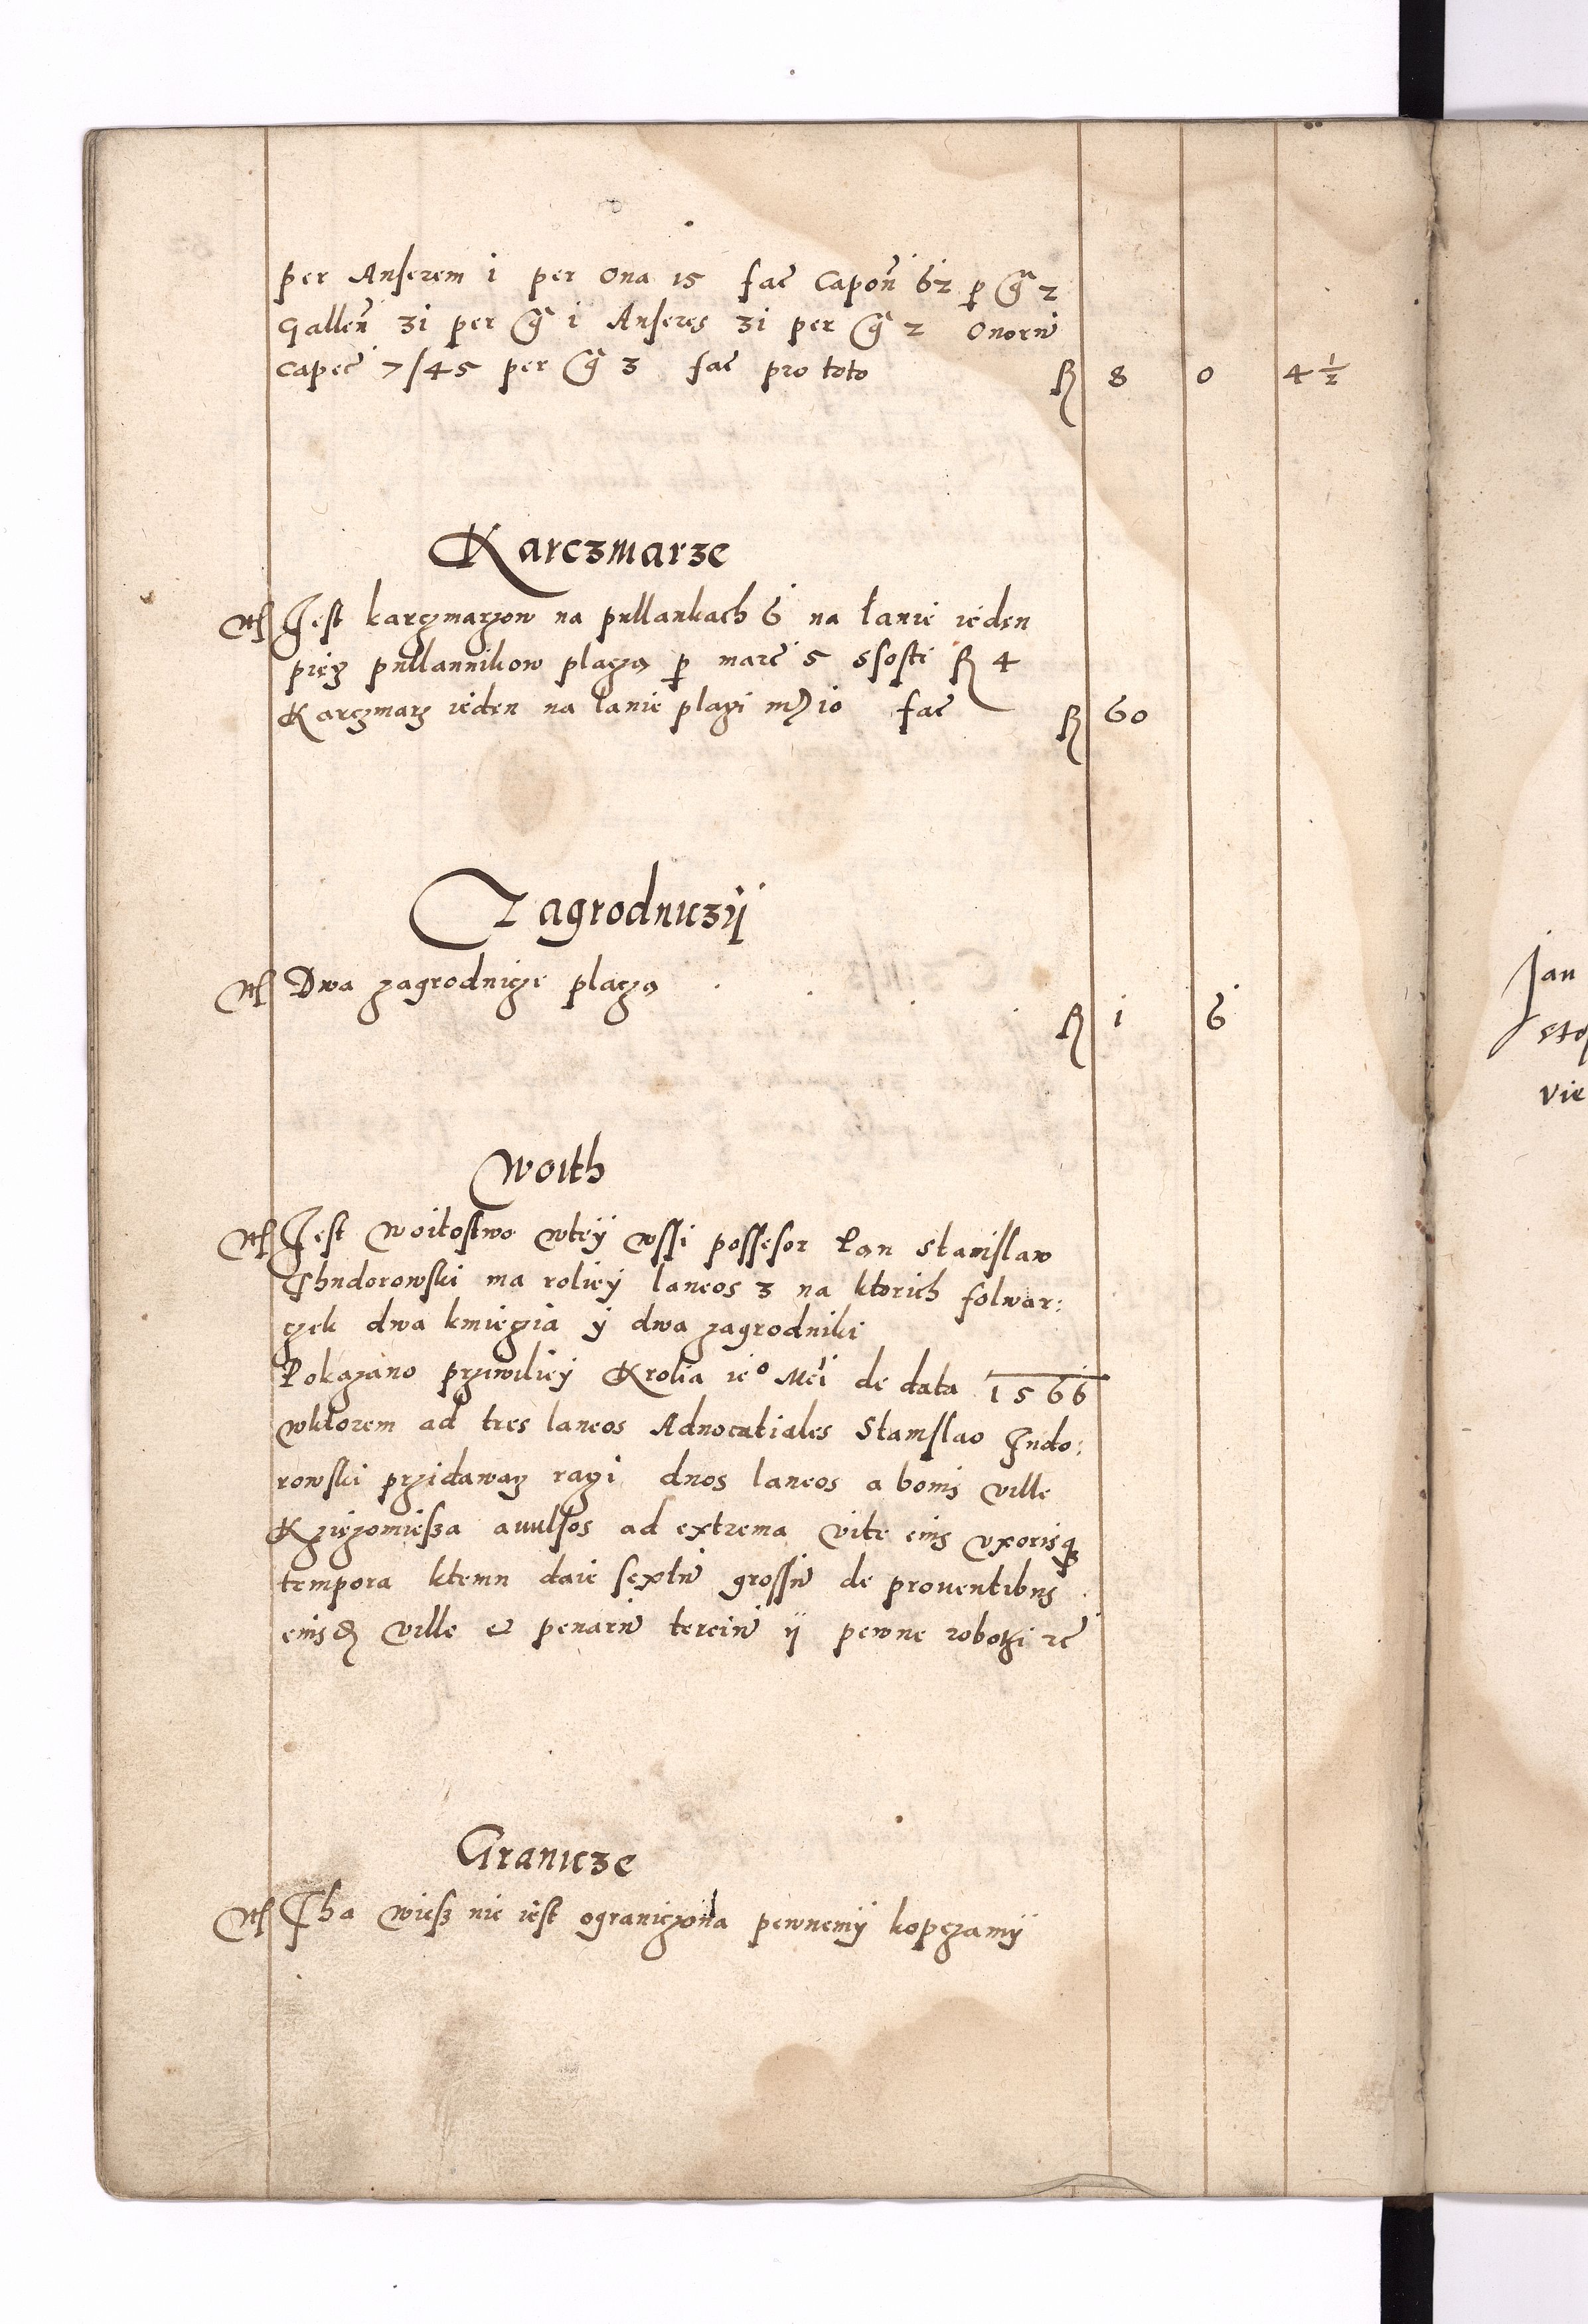 per Anserem i per Oua 15 fac̃ Capoñ 62 p gr̃ 2
Galleñ 31 per gr̃ i Anseres 31 per gr̃ 2 Ouorũ
Capec̃ 7/45 per gr̃ 3 fac̃ pro toto ℟ 8 0 4 1/2
Karczmarze
Jest karczmarzow na pullankach 6 na łanie ieden
pięcz pullannikow placzą p marc̃ 5 szosti ℟ 4
Karczmarz ieden na lanie placzi 10 fac̃ ℟ 60
Zagrodniczÿ
Dwa zagrodnicze placzą ℟ i 6
Woith
Jest woitostwo wteÿ wssi possesor Pan Stanislaw
Thudorowski ma roliey laneos 3 na ktorich folwar:
czek dwa kmieczia ÿ dwa zagrodniki
Pokazano prziwiliey Krolia ieº Mc̃i de data 1566
wktorem ad tres laneos Aduocatiales Stanislao Indo:
rowski przidawacz raczi duos laneos a bonis ville
Kziezomiesza auulsos ad extrema vite eius vxorisqȝ
tempora ktemu daie sextũ grossũ de prouentibus
eiusd ville & penarũ terciũ ÿ pewne robotki rc̃
Granicze
Tha wiesz nie iest ograniczona pewnemÿ kopczamÿ
Jan
sto
vie